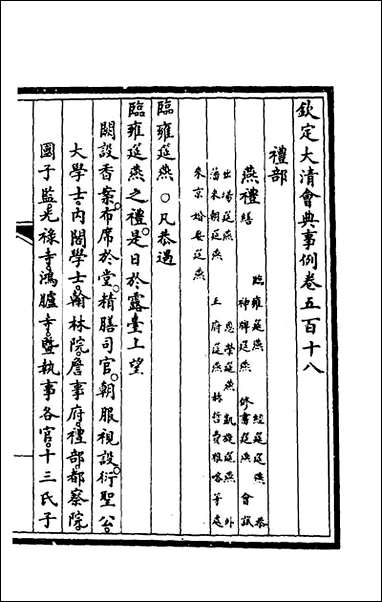 欽定大清會典事例卷五百十八
禮部
燕禮
臨雍筵燕 經筵筵燕
神牌筵燕 修書筵燕 會試
出場筵燕 恩榮筵燕 凱旋筵燕 外
藩來朝筵燕 王府筵燕
來京婚娶筵燕
臨雍筵燕○凡恭遇
臨雍筵燕之禮是日於露臺上望
闕設香案布席於堂精膳司官朝服視設衍聖公
大學士內閣學士翰林院詹事府禮部都察院
國子監光祿寺鴻臚寺暨執事各官十三氏子